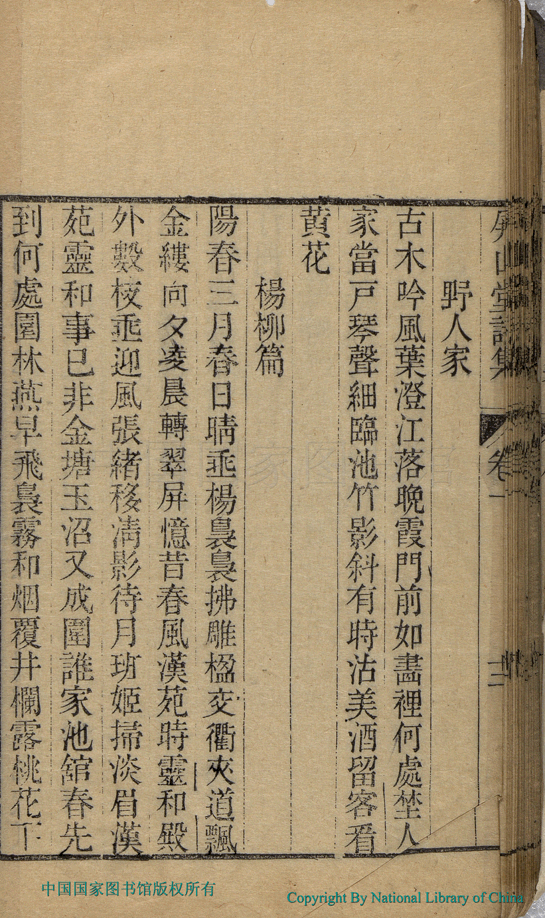 屏山堂詩集 卷一
野人家
古木吟風葉澄江落晚霞門前如畵裡何處埜人
家當戶琴聲細臨池竹影斜有時沽美酒留客看
黄花
楊柳篇
陽春三月春日晴垂楊裊裊拂雕楹交衢夾道飄
金縷向夕凌晨轉翠屏憶昔春風漢苑時靈和殿
外數枝垂迎風張緒移清影待月班姬掃淡眉漢
苑靈和事已非金塘玉沼又成圍誰家池舘春先
到何處園林燕早飛裊霧和烟覆井欄露桃花下
中国国家图书馆版权所有
Copyright By National Library of China